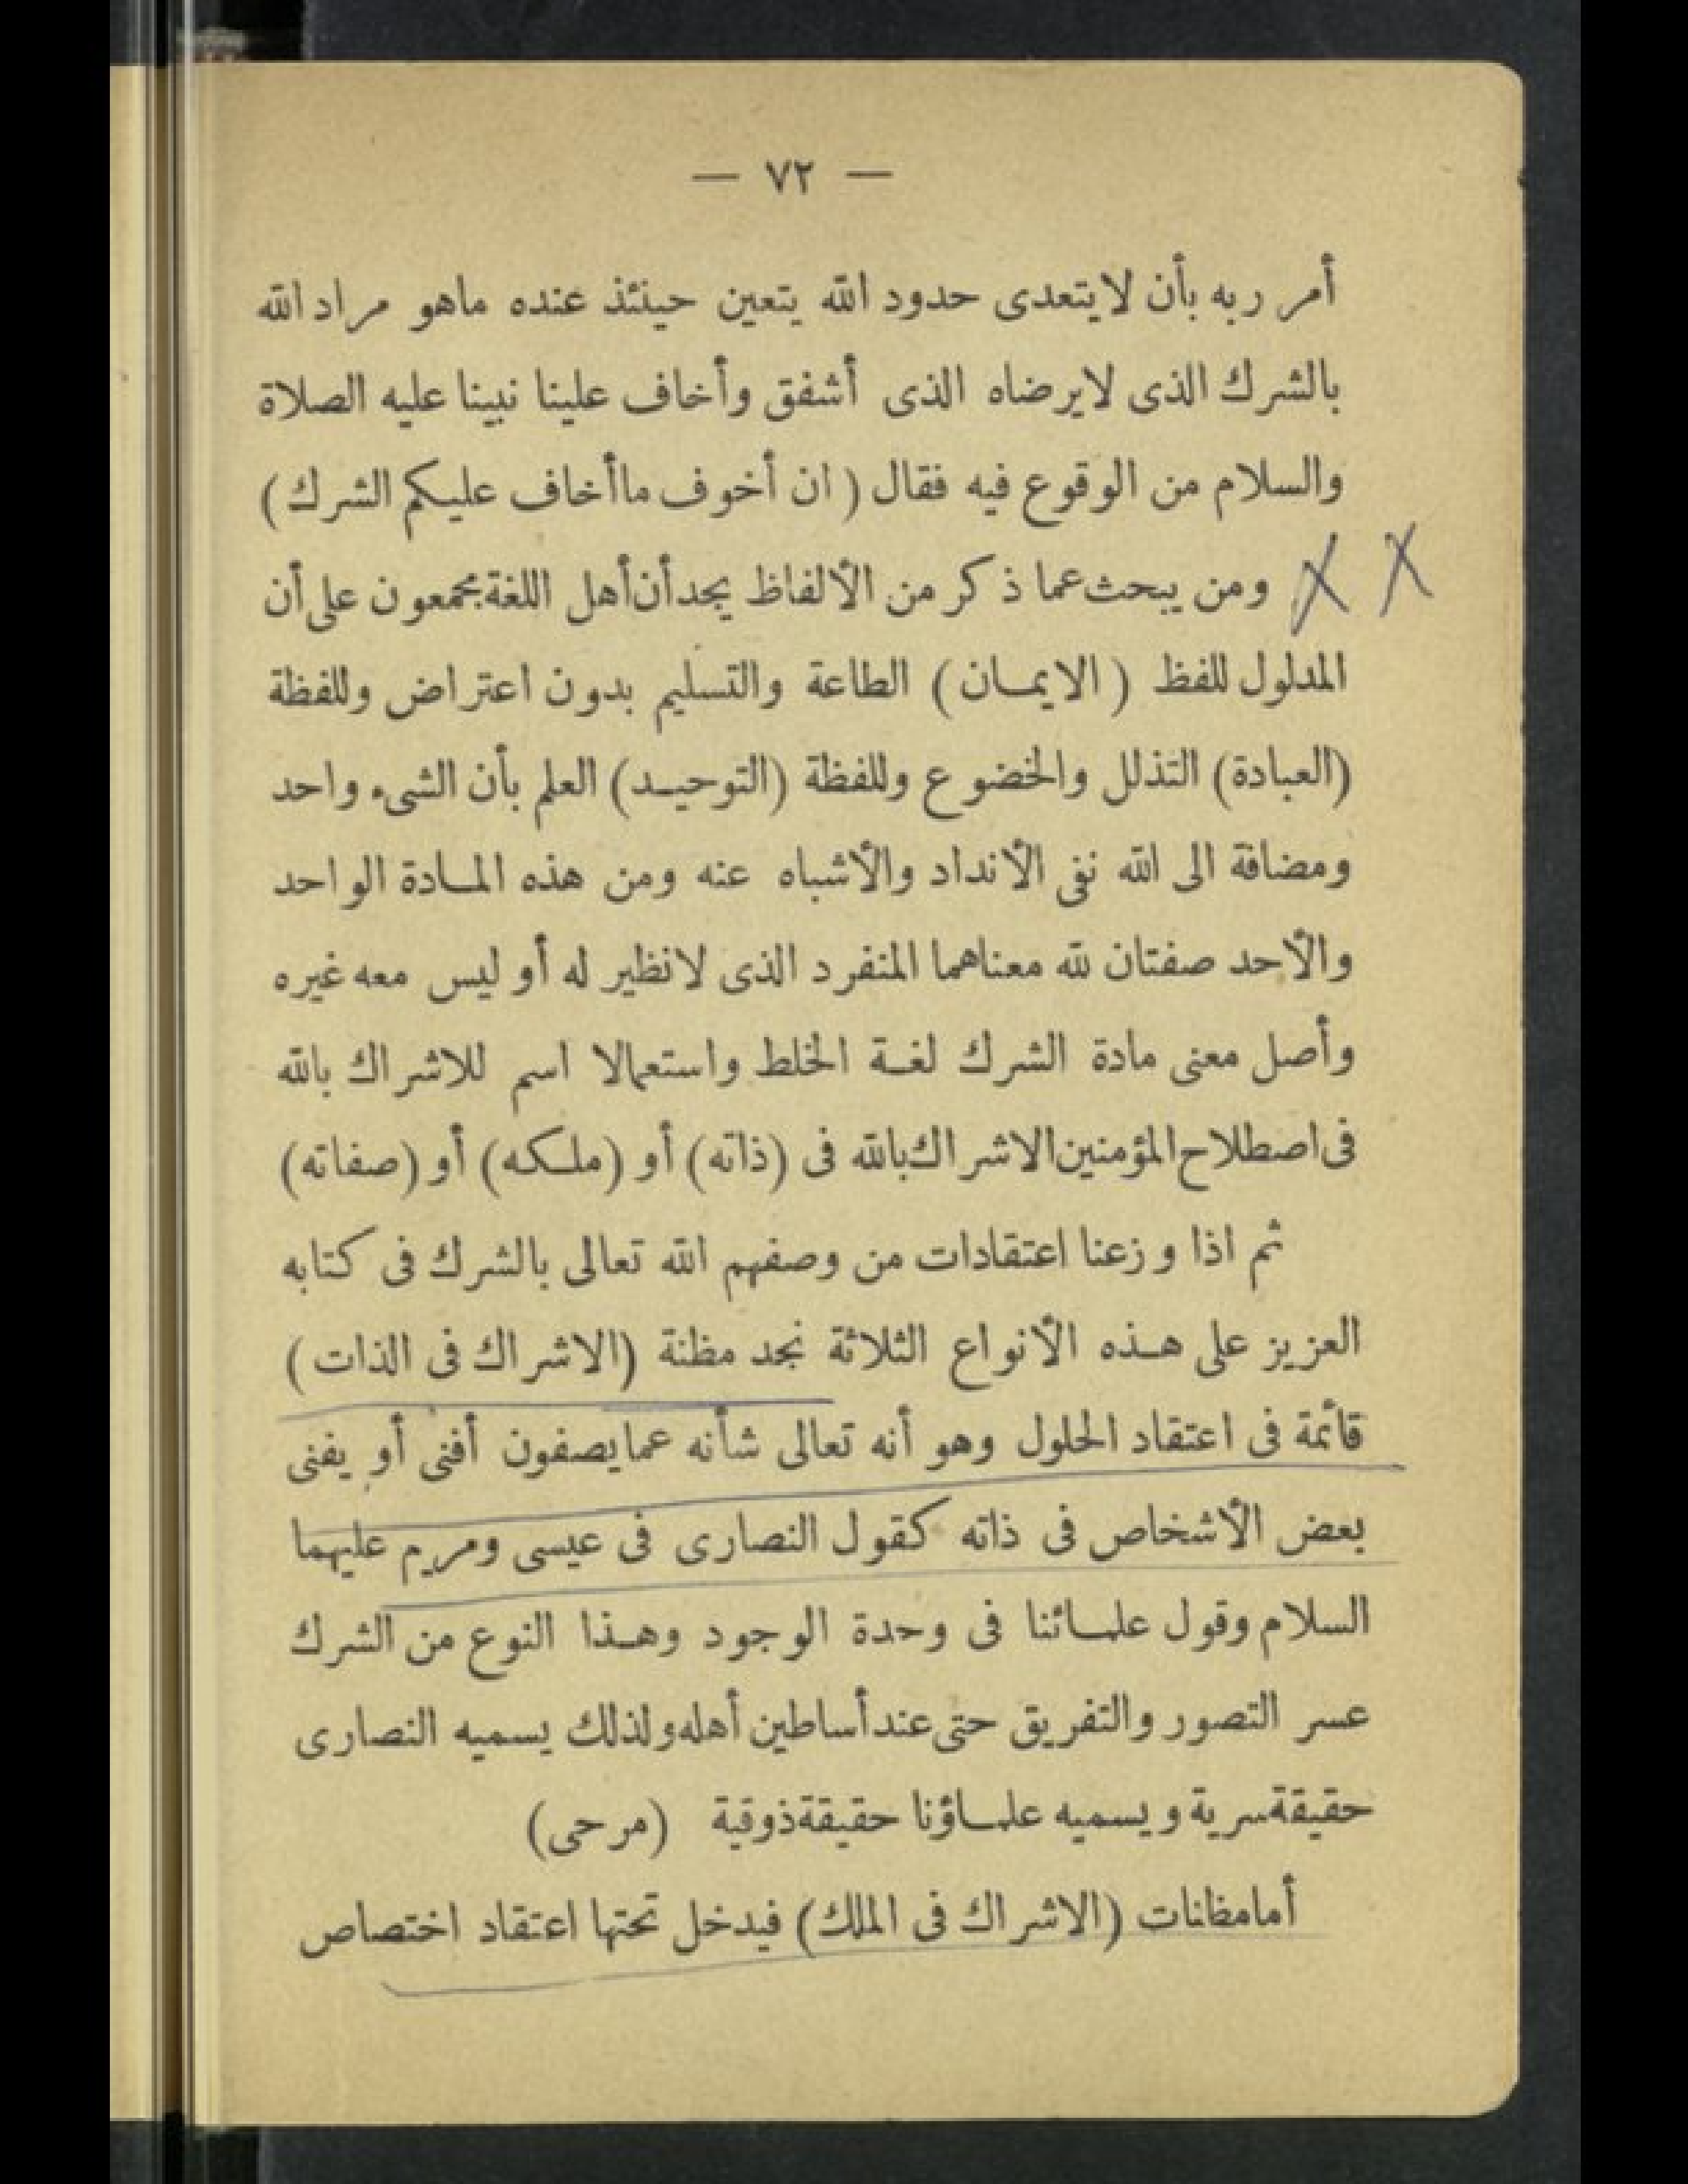 — ٧٢ —
أمر ربه بأن لايتعدى حدود الله يتعين حينئذ عنده ماهو مراد الله
بالشرك الذى لايرضاه الذى أشفق وأخاف علينا نبينا عليه الصلاة
والسلام من الوقوع فيه فقال ( ان أخوف ماأخاف عليكم الشرك )
ومن يبحث عما ذكر من الألفاظ يجد أن أهل اللغة مجمعون على أن
المدلول للفظ ( الايمــان ) الطاعة والتسليم بدون اعتراض وللفظة
(العبادة) التذلل والخضوع وللفظة (التوحيــد) العلم بأن الشىء واحد
ومضافة الى الله نفى الأنداد والأشباه عنه ومن هذه المــادة الواحد
والأحد صفتان لله معناهما المنفرد الذى لانظير له أو ليس معه غيره
وأصل معنى مادة الشرك لغــة الخلط واستعمالا اسم للاشراك بالله
فى اصطلاح المؤمنين الاشراك بالله فى (ذاته) أو (ملــكه) أو (صفاته)
ثم اذا وزعنا اعتقادات من وصفهم الله تعالى بالشرك فى كتابه
العزيز على هــذه الأنواع الثلاثة نجد مظنة (الاشراك فى الذات )
قائمة فى اعتقاد الحلول وهو أنه تعالى شأنه عما يصفون أفنى أو يفنى
بعض الأشخاص فى ذاته كقول النصارى فى عيسى ومريم عليهما
السلام وقول علمــائنا فى وحدة الوجود وهــذا النوع من الشرك
عسر التصور والتفريق حتى عند أساطين أهله ولذلك يسميه النصارى
حقيقة سرية ويسميه علمــاؤنا حقيقة ذوقية (مرحى)
أما مظانات (الاشراك فى الملك) فيدخل تحتها اعتقاد اختصاص